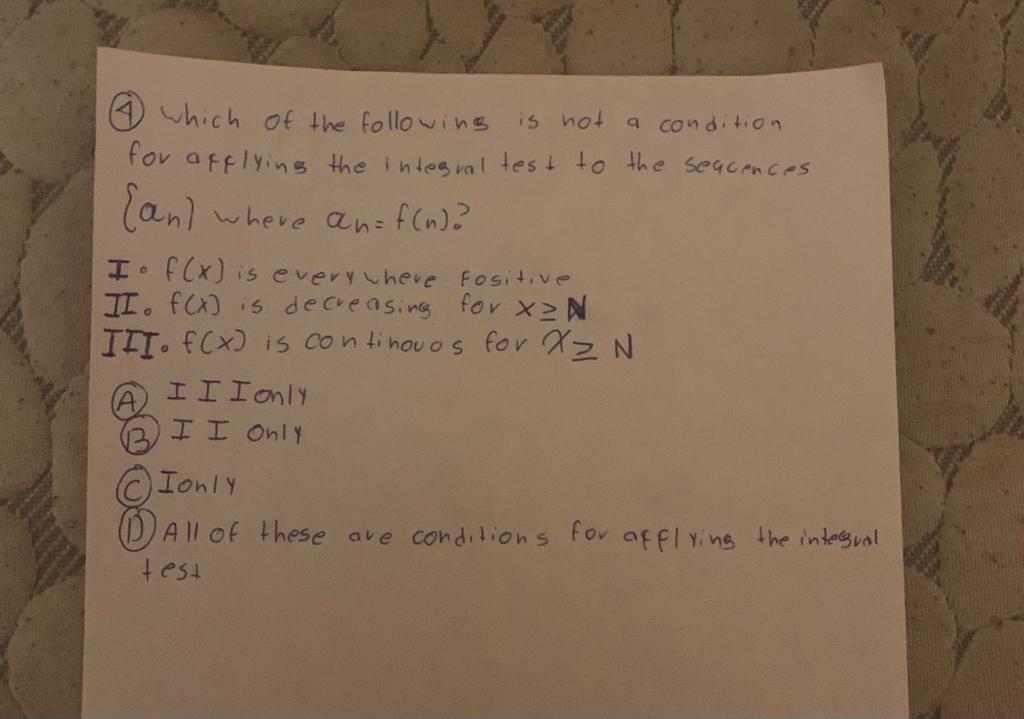 ④ which of the following is not a condition
for applying the integral test to the seqcences
{an} where an = f(n)?
I. f(x) is everywhere Positive
II. f(x) is decreasing for x ≥ N
III. f(x) is continouos for x ≥ N
Ⓐ III only
Ⓑ II only
Ⓒ I only
Ⓓ All of these are conditions for applying the integral
test